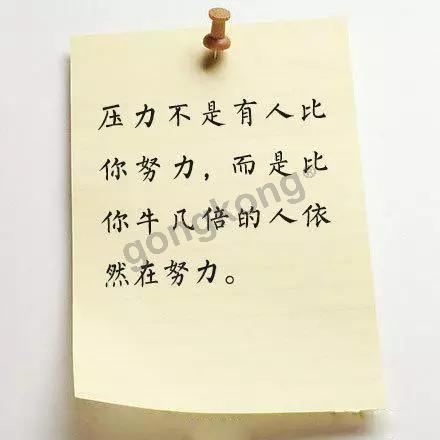 压力不是有人比
你努力，而是比
你牛几倍的人依
然在努力。
gongkong®